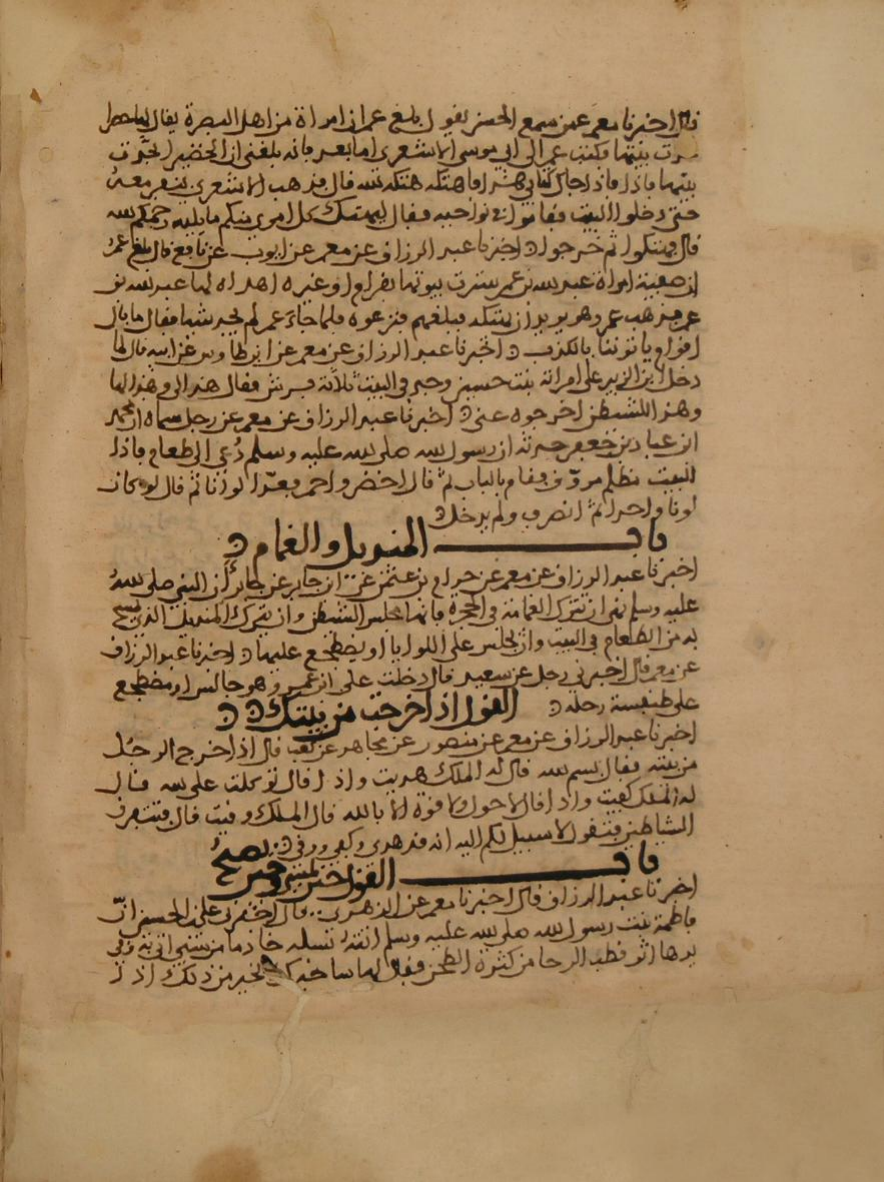 قال اخبرنا معمر عمن سمع الحسن يقول بلغ عمر ان امراة من اهل البصرة يقال لها
سترت بيتها فكتب عمر الى ابي موسى الاشعري اما بعد فانه بلغني ان الخضيرا نجدت
بيتها فاذا جاك كتابي هذا فاهتكه هتكه الله قال فذهب الاشعري بنفر معه
حتى دخلوا البيت فقاموا في نواحيه فقال ليهتك كل امرئ منكم ما يليه رحمكم الله
قال فهتكوا ثم خرجوا اخبرنا عبد الرزاق عن معمر عن ايوب عن نافع قال بلغ عمر
ان صفية امراة عبد الله بن عمر سترت بيوتها بقرام او غيره اهداه لها عبد الله بن
عمر فذهب عمر وهو يريد ان يهتكه فبلغهم فنزعوه فلما جاء عمر لم يجد شيا فقال ما بال
اقوام ياتوننا بالكذب اخبرنا عبد الرزاق عن معمر عن ابن طاوس عن ابيه قال لما
دخل ابن الزبير على امراته بنت حسين وجد في البيت ثلاثة فرش فقال هذا لي وهذا لها
وهذا للشيطن اخرجوه عني اخبرنا عبد الرزاق عن معمر عن رجل سماه
ان عباد بن جعفر حدثه ان رسول الله صلى الله عليه وسلم دعي الى طعام فاذا
البيت مظلم مزوق فقام بالباب ثم قال اخضر واحمر فعد الوانا ثم قال لو كان
لونا واحدا ثم انصرف ولم يدخل
باب المنديل والقمام
اخبرنا عبد الرزاق عن معمر عن حرام بن عثمن عن ابن جابر عن جابر ان النبي صلى الله
عليه وسلم نهى ان تترك القمامة في الحجرة فانها مجلس الشيطن وان يترك المنديل الذي يمسح
به من الطعام في البيت وان يجلس على الولايا او يضطجع عليها اخبرنا عبد الرزاق
عن معمر قال اخبرني رجل عن سعيد قال دخلت على ابن عمر وهو جالس او مضطجع
على طنفسة رحله
القول اذا خرجت من بيتك
اخبرنا عبد الرزاق عن معمر عن منصور عن مجاهد عن كعب قال اذا خرج الرجل
من بيته فقال بسم الله قال له الملك هديت واذا قال توكلت على الله قال
له الملك كفيت واذا قال لا حول ولا قوة الا بالله قال الملك وقيت قال فتتفرق
الشياطين فتقول لا سبيل لكم اليه انه قد هدي وكفي ووقي
باب القول حين يمسي وحين يصبح
اخبرنا عبد الرزاق قال اخبرنا معمر عن الزهري قال اخبرني علي بن الحسين ان
فاطمة بنت رسول الله صلى الله عليه وسلم اتته تسله خادما من سبي اتي به وفي
يدها اثر قطب الرحا من كثرة الطحن فقال لها ساخبرك بخير من ذلك اذا